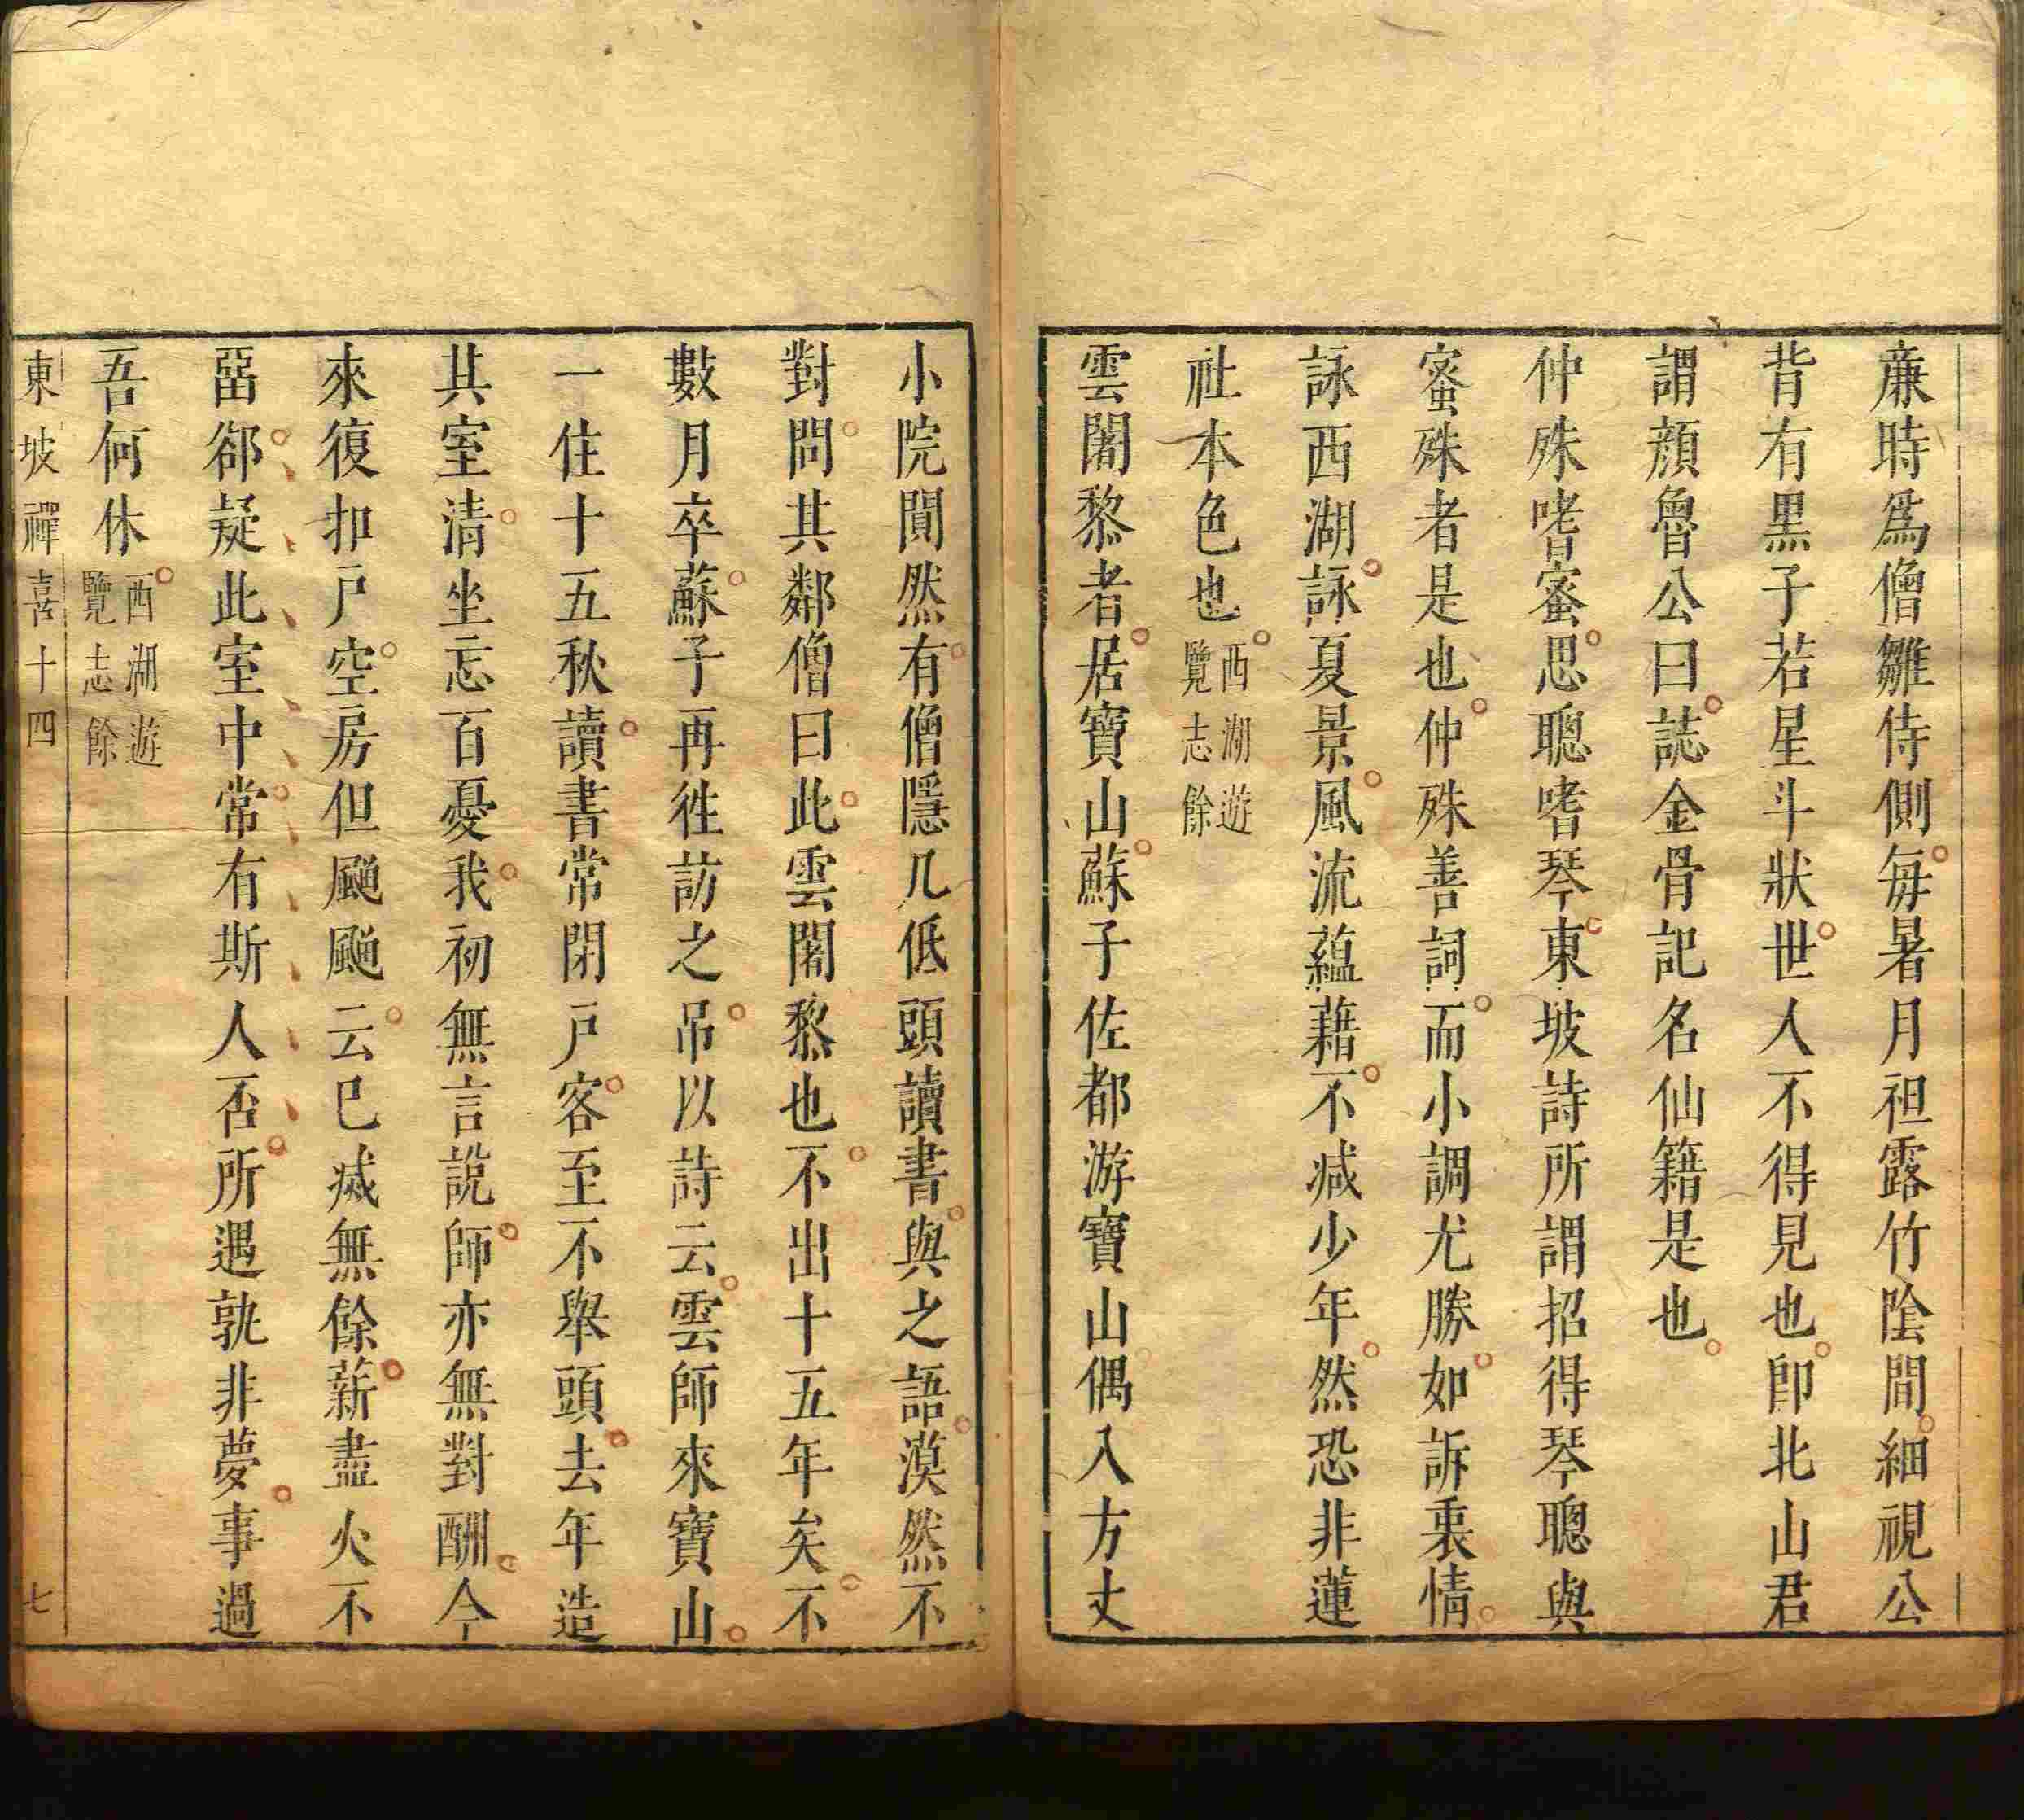 亷時爲僧雛侍側每暑月袒露竹陰間細視公
背有黑子若星斗狀世人不得見也卽北山君
謂顔魯公曰誌金骨記名仙籍是也
仲殊嗜蜜思聰嗜琴東坡詩所謂招得琴聰與
蜜殊者是也仲殊善詞而小調尤勝如訴衷情
詠西湖詠夏景風流蘊藉不減少年然恐非蓮
社本色也西湖遊覽志餘
雲闍黎者居寶山蘇子佐都游寶山偶入方丈
小院閴然有僧隱几低頭讀書與之語漠然不
對問其鄰僧曰此雲闍黎也不出十五年矣不
數月卒蘇子再徃訪之吊以詩云雲師來寶山
一住十五秋讀書常閉戸客至不舉頭去年造
其室清坐忘百憂我初無言說師亦無對酬今
來復扣戸空房但颼颼云巳滅無餘薪盡火不
畱郤疑此室中常有斯人否所遇孰非夢事過
吾何休西湖遊覽志餘
東坡禪喜十四 七